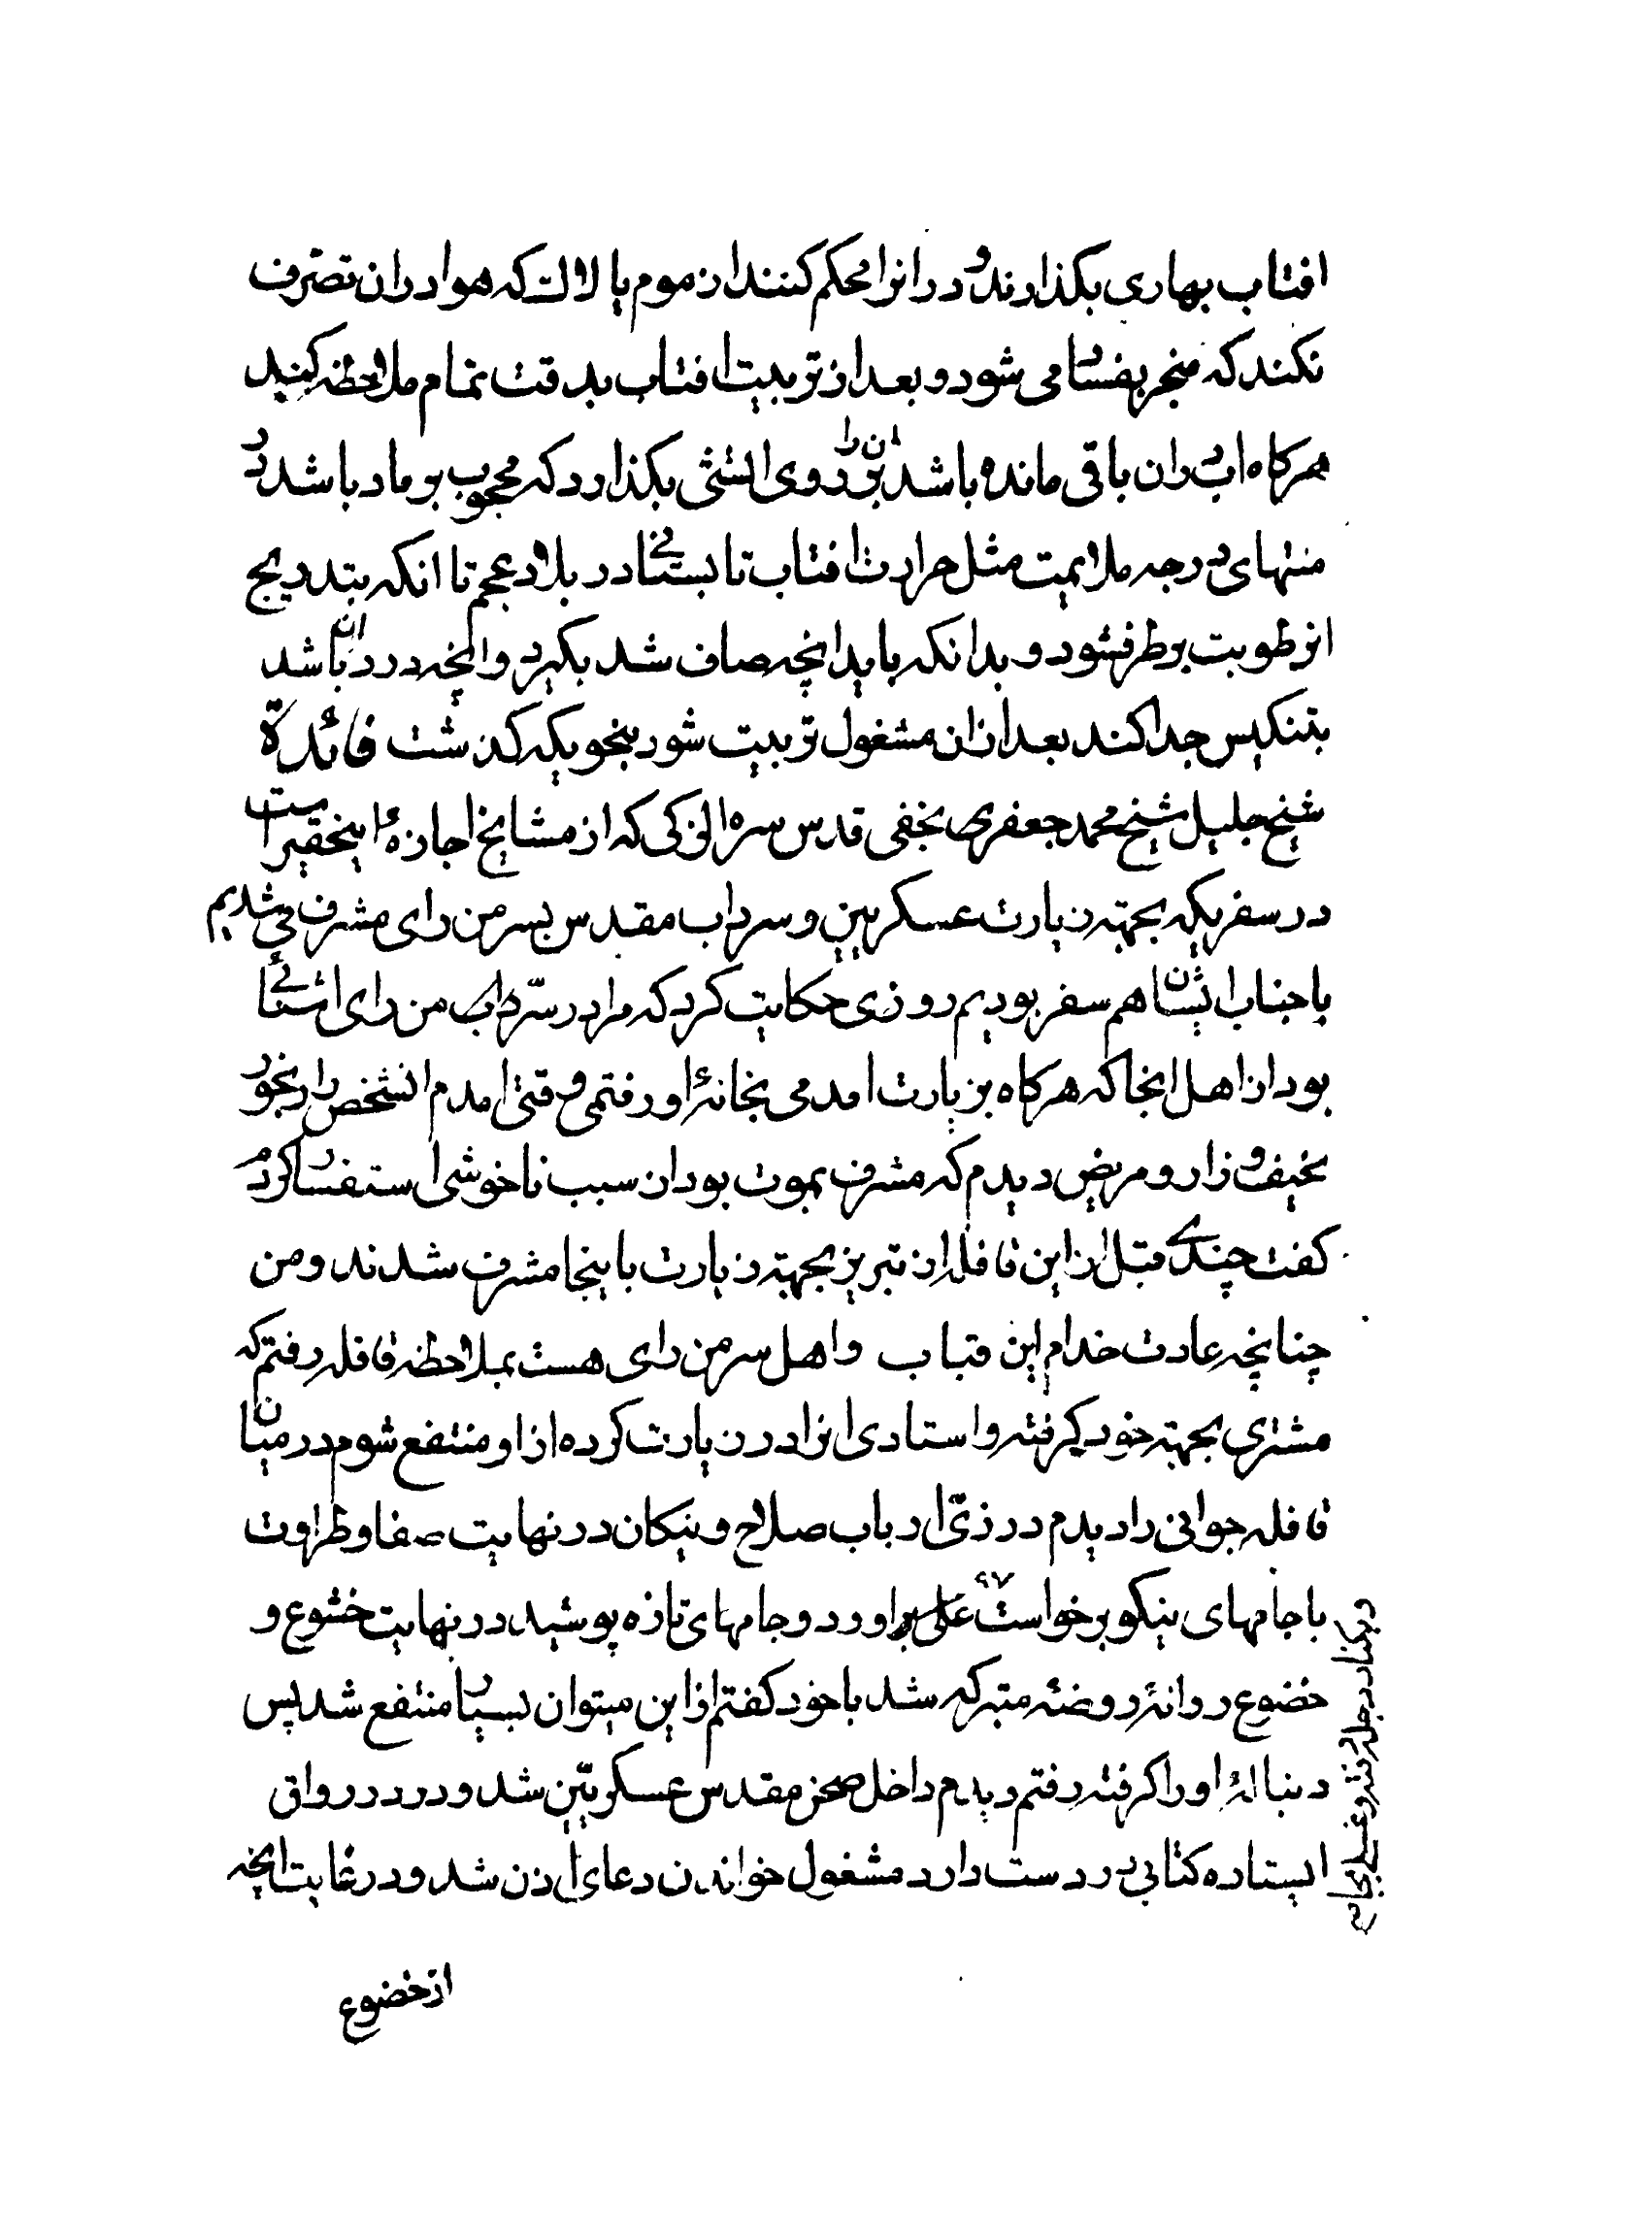 افتاب بهاری بکذارند و در انرا محکم کنند از موم یا لاك که هوا در ان تصرف
نکند که منجر بفساد می شود و بعد از تربیت افتاب بدقت تمام ملاحظه کنید
هرکاه اب در ان باقی مانده باشد ان را بر روی اتشی بکذارد که محجوب بر ماد باشد در
منتهای درجه ملایمت مثل حرارت افتاب تابستانی در بلاد عجم تا انکه بتدریج
ان رطوبت برطرف شود و بدانکه باید انچه صاف شد بکیرد و انچه درد ان باشد
بتنکیس جدا کند بعد از ان مشغول تربیت شود بنحویکه کذشت فائدة
شیخ جلیل شیخ محمد جعفر نجفی قدس سره الزکی که از مشایخ اجازهٔ اینحقیر است
در سفریکه بجهته زیارت عسکریین و سرداب مقدس بسر من رای مشرف می شدیم
با جناب ایشان هم سفر بودیم روزی حکایت کرد که مرا در سرّ من رای اشنائی
بود از اهل انجا که هرکاه بزیارت امدمی بخانهٔ او رفتمی وقتی امدم انشخص را رنجور
نحیف و زار و مریض دیدم که مشرف بموت بود از سبب ناخوشی استفسار کردم
کفت چندی قبل از این قافله از تبریز بجهته زیارت باینجا مشرف شدند و من
چنانچه عادت خدام این قباب و اهل سر من رای هست بملاحظه قافله رفتم که
مشتری بجهته خود کرفته و استادی انرا در زیارت کرده از او منتفع شوم در میان
قافله جوانی را دیدم در زیّ ارباب صلاح و نیکان در نهایت صفا و طراوت
با جامهای نیکو برخواست براورد و جامهای تازه پوشید در نهایت خشوع و
و بکنار دجله رفته و غسلی بجای
خضوع روانهٔ روضهٔ متبرکه شد با خود کفتم از این میتوان بسیار منتفع شد پس
دنبالهٔ او را کرفته رفتم دیدم داخل صحن مقدس عسکریّین شد و در در رواق
ایستاده کتابی در دست دارد مشغول خواندن دعای اذن شد و در غایت انچه
از خضوع